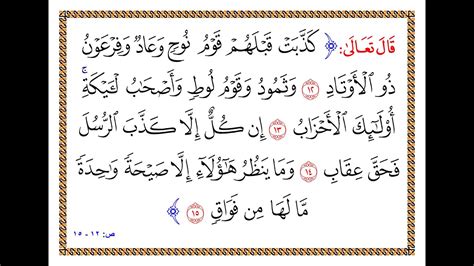 قَالَ تَعَالَىٰ: ﴿ كَذَّبَتْ قَبْلَهُمْ قَوْمُ نُوحٍ وَعَادٌ وَفِرْعَوْنُ
ذُو ٱلْأَوْتَادِ ١٢ وَثَمُودُ وَقَوْمُ لُوطٍ وَأَصْحَٰبُ لْـَٔيْكَةِ ۚ
أُو۟لَٰٓئِكَ ٱلْأَحْزَابُ ١٣ إِن كُلٌّ إِلَّا كَذَّبَ ٱلرُّسُلَ
فَحَقَّ عِقَابِ ١٤ وَمَا يَنظُرُ هَٰٓؤُلَآءِ إِلَّا صَيْحَةً وَٰحِدَةً
مَّا لَهَا مِن فَوَاقٍ ١٥ ﴾
ص: ١٢ - ١٥